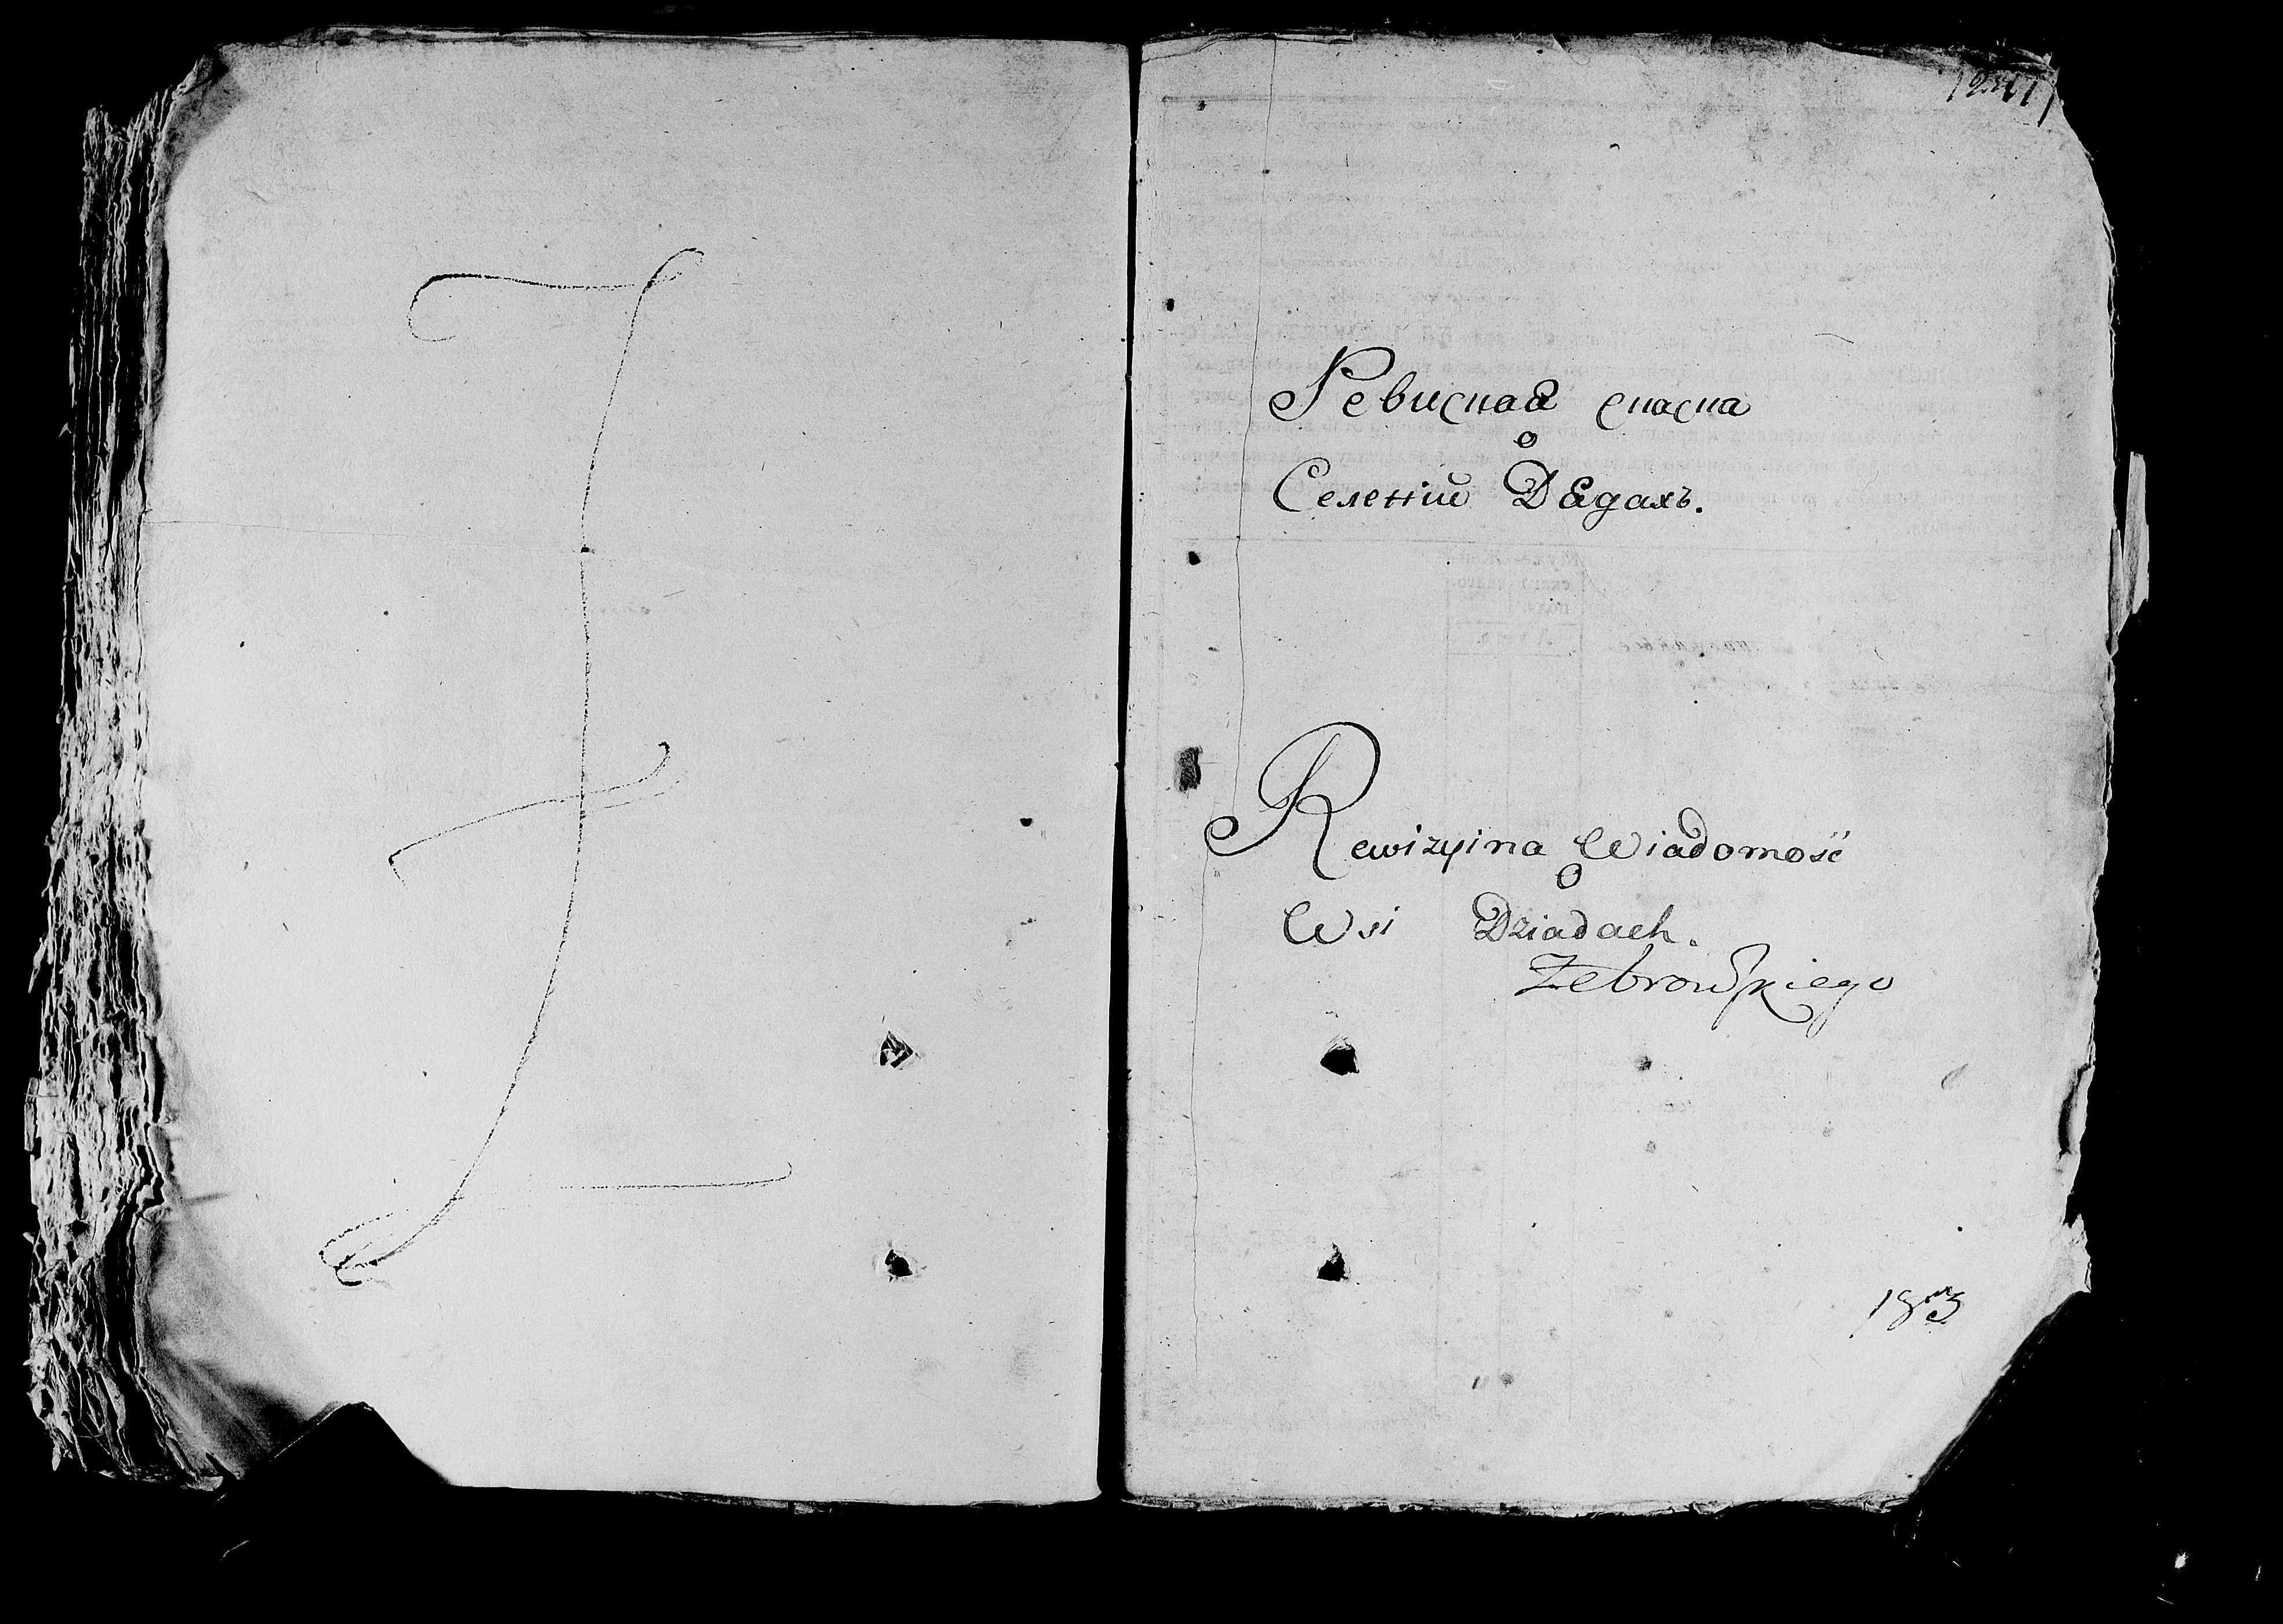 Ревиснаа спасна
о
Селеніи Дѣдахъ.
Rewizyina Wiadomość
O
Wsi Dziadach.
Zebrowskiego